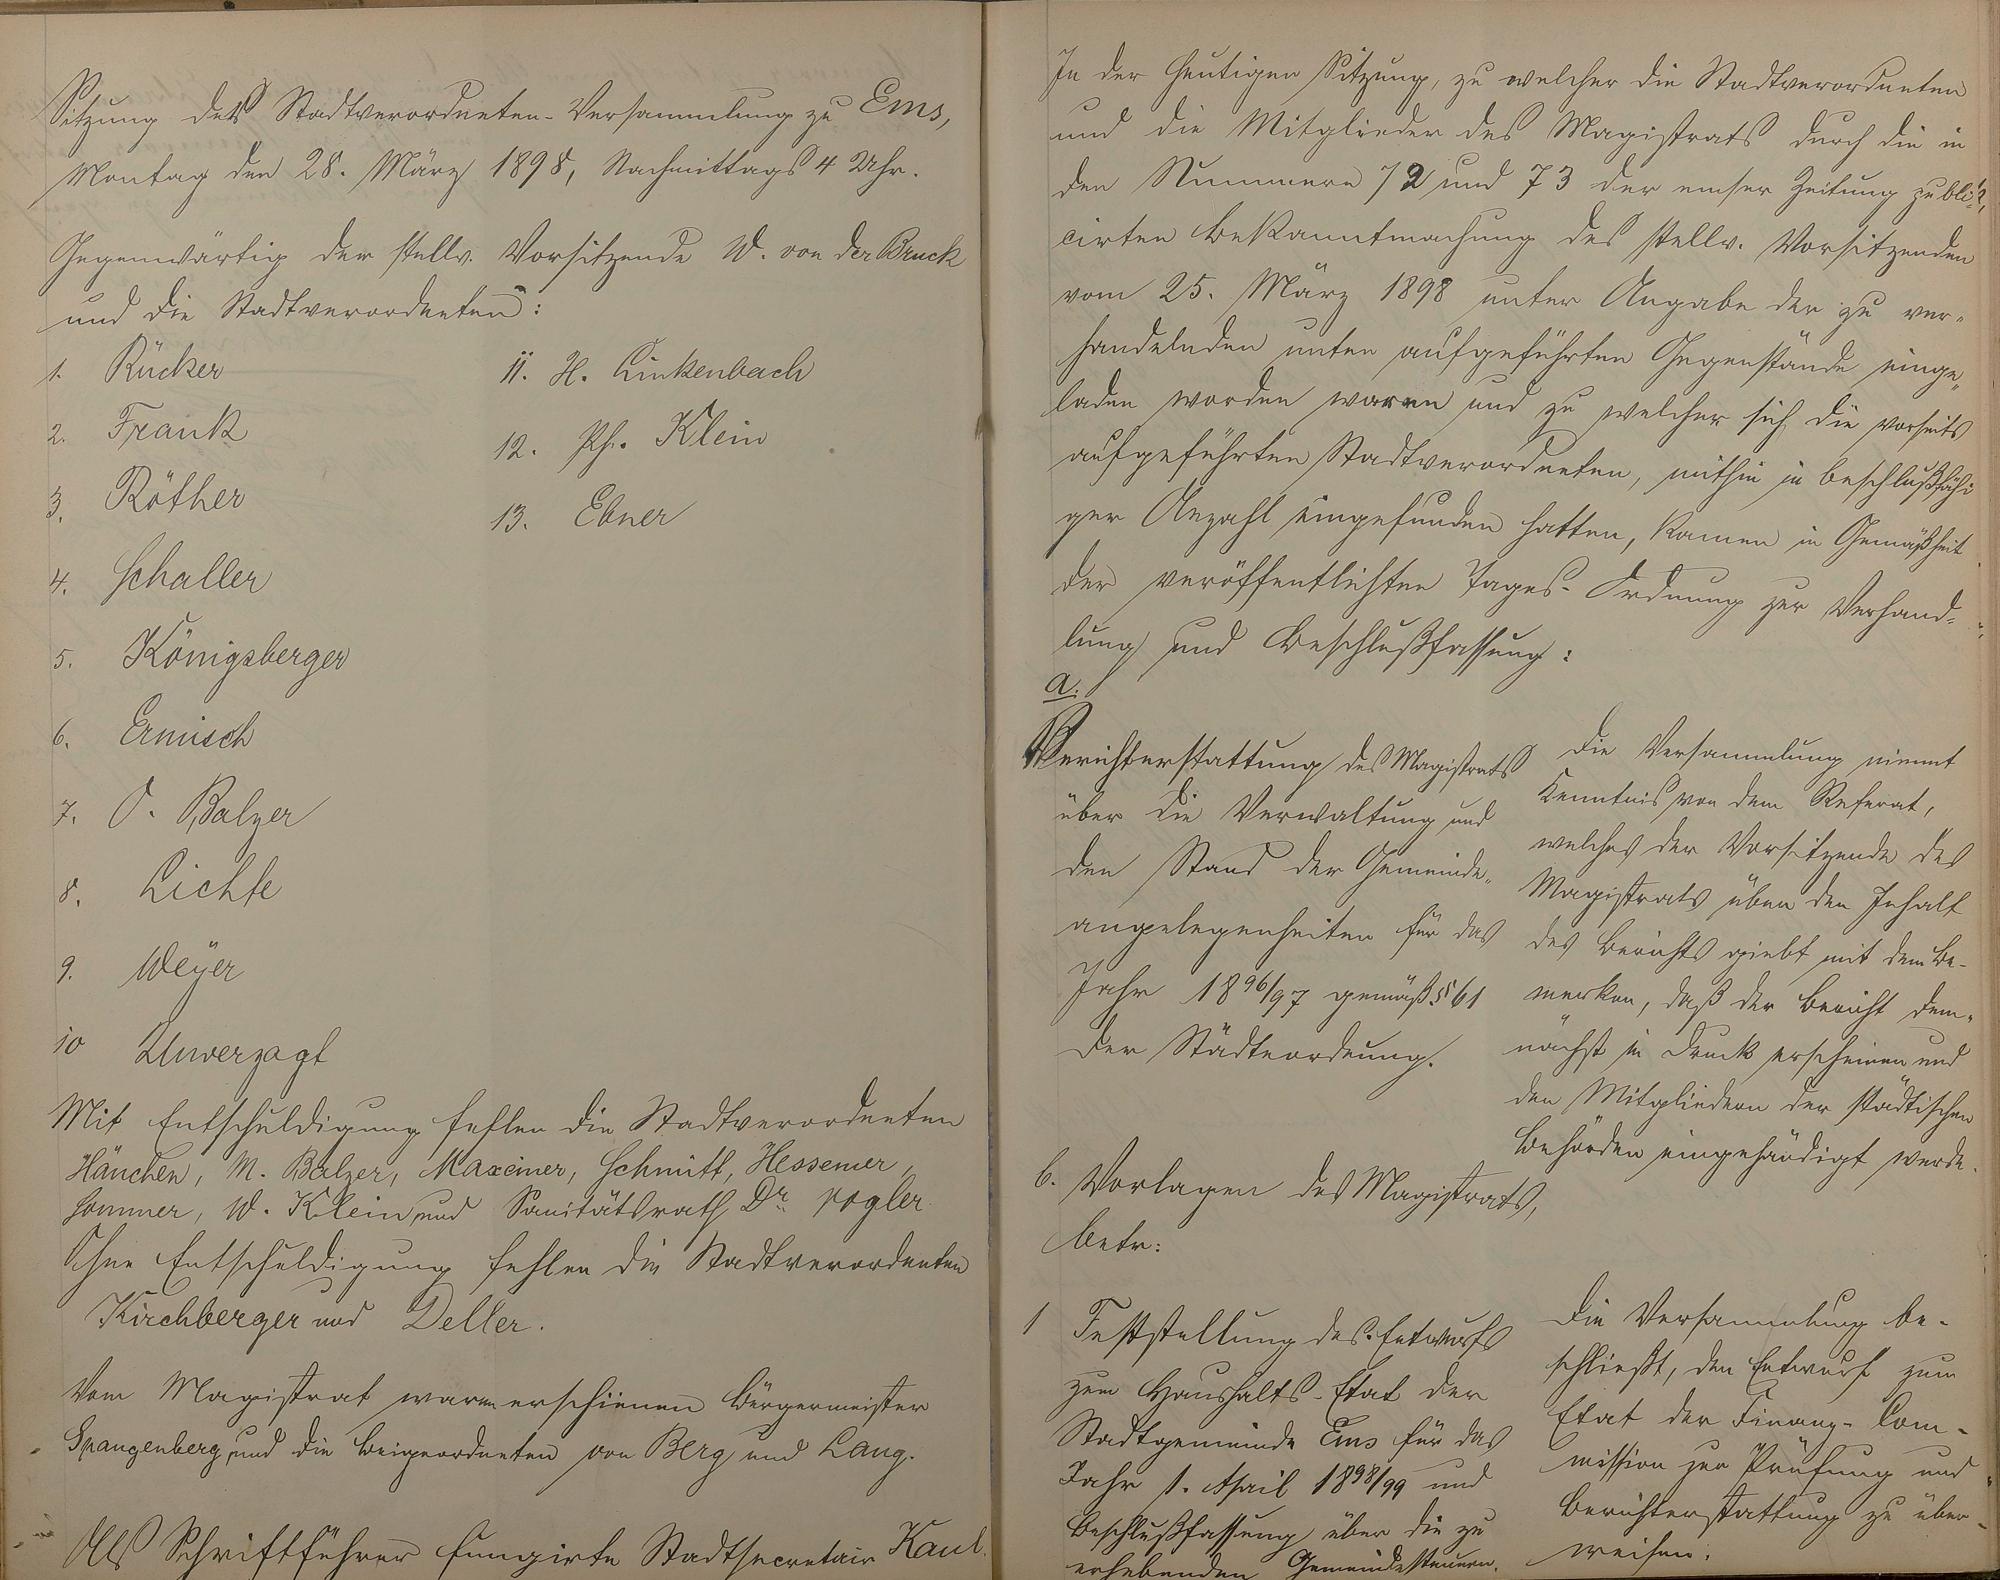 Sitzung der Stadtverordneten-Versammlung zu Ems,
Montag den 28. März 1898, Nachmittags 4 Uhr.
Gegenwärtig der stellv. Vorsitzende W. von der Bruck
und die Stadtverordneten:
1. Rücker
2. Frank
3. Röther
4. Schaller
5. Königsberger
6. Ermisch
7. O. Balzer
8. Lichte
9. Weyer
10 Unverzagt
11. H. Linkenbach
12. Ph. Klein
13. Ebner
Mit Entschuldigung fehlen die Stadtverordneten
Hänchen, M. Balzer, Maxeiner, Schmitt, Hessemer,
Sommer, W. Klein und Sanitätsrath Dr. Vogler
Ohne Entschuldigung fehlen die Stadtverordneten
Kirchberger und Deller.
Vom Magistrat waren erschienen Bürgermeister
Spangenberg und die Beigeordneten von Berg und Lang.
Als Schriftführer fungirte Stadtsecretair Kaul.
In der heutigen Sitzung, zu welcher die Stadtverordneten
und die Mitglieder des Magistrats durch die in
den Nummern 72 und 73 der emser Zeitung publi-
cirten Bekanntmachung des stellv. Vorsitzenden
vom 25. März 1898 unter Angabe der zu ver-
handelnden unten aufgeführten Gegenstände einge-
laden worden waren und zu welcher sich die vorseits
aufgeführten Stadtverordneten, mithin in beschlußfähi
ger Anzahl eingefunden hatten, kamen in Gemäßheit
der veröffentlichten Tages-Ordnung zur Verhand-
lung und Beschlußfassung:
a.
Berichterstattung des Magistrats
über die Verwaltung und
den Stand der Gemeinde-
angelegenheiten für das
Jahr 1896/97 gemäß § 61
der Städteordnung.
Die Versammlung nimmt
Kenntnis von dem Referat,
welches der Vorsitzende des
Magistrats über den Inhalt
des Berichts giebt mit dem Be-
merken, daß der Bericht dem-
nächst in Druck erscheinen und
den Mitgliedern der städtischen
Behörden eingehändigt werde.
b. Vorlagen des Magistrats,
betr:
1 Feststellung des Entwurfs
zum Haushalts-Etat der
Stadtgemeinde Ems für das
Jahr 1. April 1898/99 und
Beschlußfassung über die zu
erhebenden Gemeindesteuern.
Die Versammlung be-
schließt, den Entwurf zum
Etat der Finanz-Com-
mission zur Prüfung und
Berichterstattung zu über-
weisen.